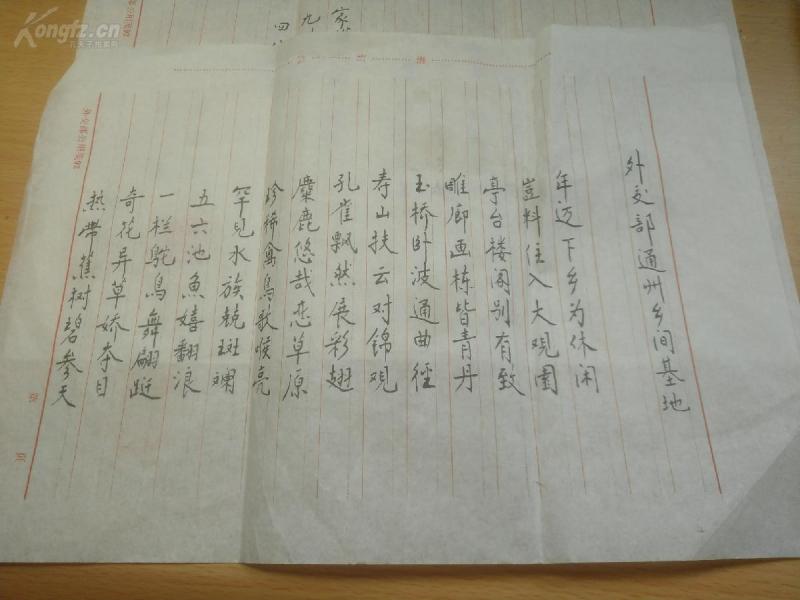 外交部通州乡间基地
年迈下乡为休闲
岂料住入大观园
亭台楼阁别有致
雕廊画栋皆青丹
玉桥卧波通曲径
寿山扶云对锦观
孔雀飘然展彩翅
麋鹿悠哉恋草原
珍稀禽鸟歌喉亮
罕见水族兢斑斓
五六池魚嬉翻浪
一栏鸵鸟舞翩跹
奇花异草娇夺目
热带蕉树碧参天
第
页
Kongfz.cn